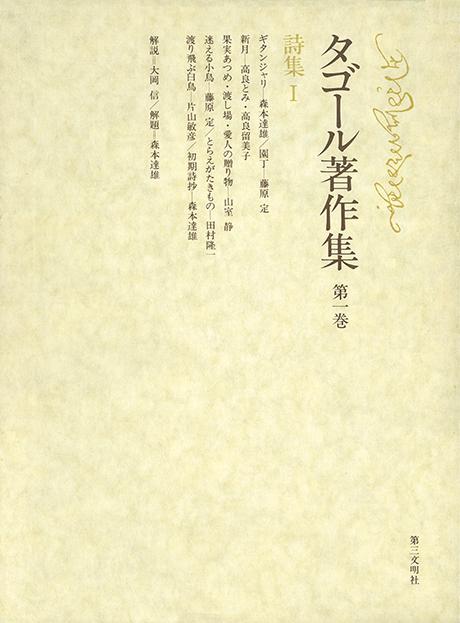 タゴール著作集 第一巻
詩集 I
ギタンジャリ―森本達雄/園丁―藤原 定
新月―高良とみ・高良留美子
果実あつめ・渡し場・愛人の贈り物―山室 静
迷える小鳥―藤原 定/とらえがたきもの―田村隆一
渡り飛ぶ白鳥―片山敏彦/初期詩抄―森本達雄
解説=大岡 信/解題=森本達雄
第三文明社